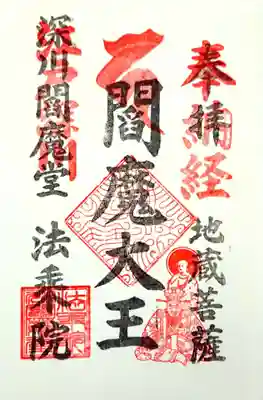 奉拝
納経
地蔵菩薩
閻魔大王
深川閻魔堂 法乗院